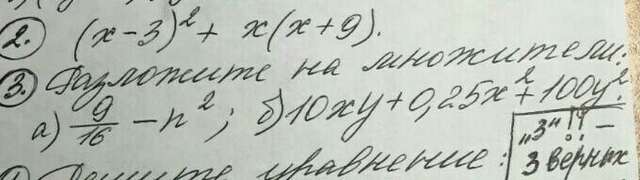 2. (x-3)² + x(x+9).
3. Разложите на множители:
а) 9/16 - n²; б) 10xy + 0,25x² + 100y².
"3"!! -
уравнение: 3 верных